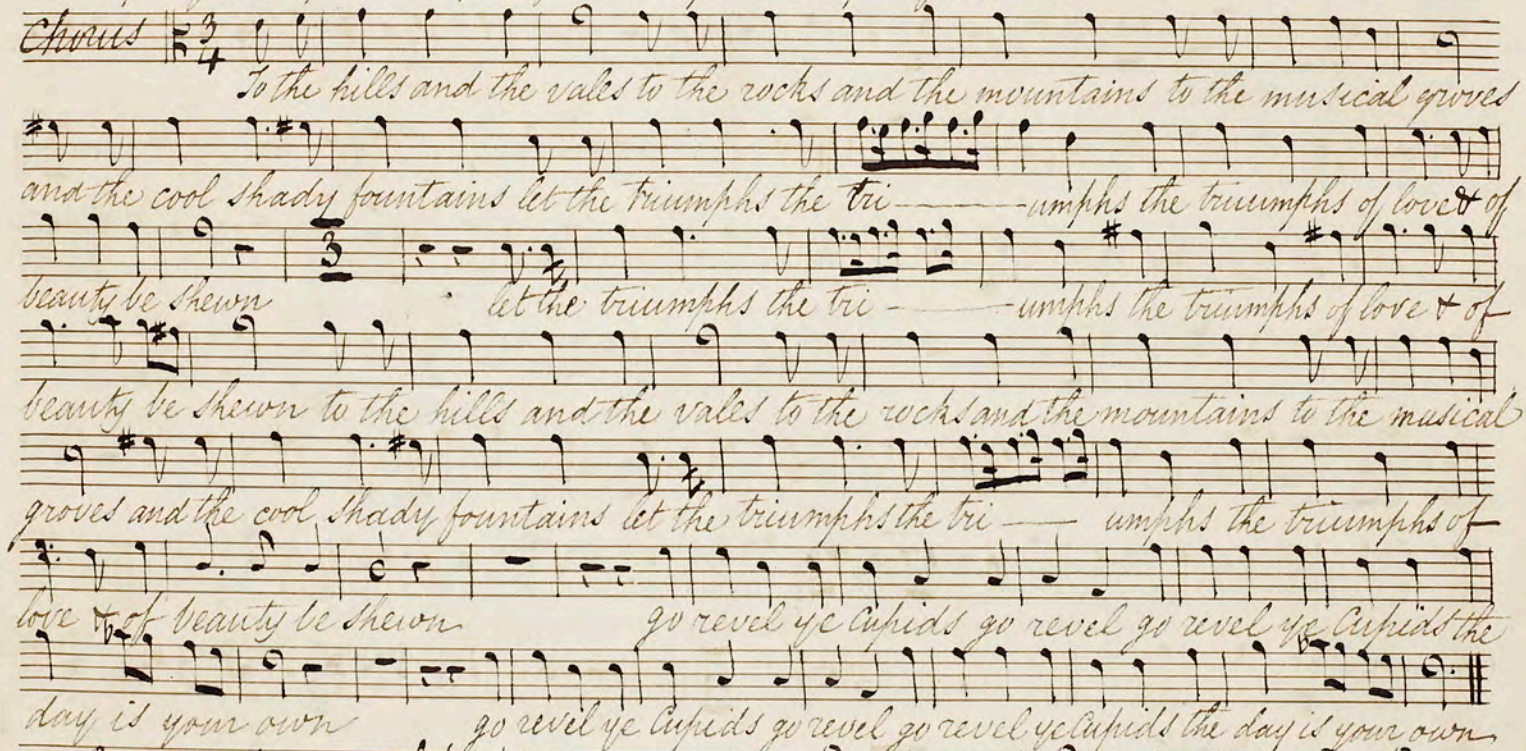 Chorus 3 4
To the hills and the vales to the rocks and the mountains to the musical groves
and the cool shady fountains let the triumphs the tri - umphs the triuumphs of love & of
3
beauty be shewn let the triumphs the tri - umphs the triumphs of love & of
beauty be shewn to the hills and the vales to the rocks and the mountains to the musical
groves and the cool shady fountains let the triumphs the tri - umphs the triumphs of
love & of beauty be shewn go revel ye Cupids go revel go revel ye Cupids the
day is your own go revel ye Cupids go revel go revel ye Cupids the day is your own